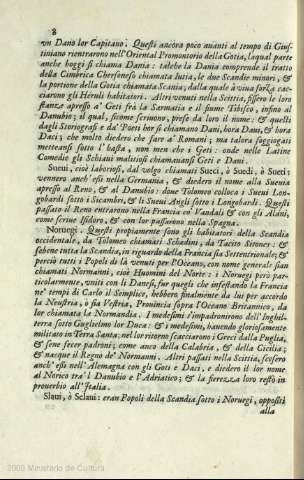 8
vn Dano lor Capitano. Questi ancora poco auanti al tempo di Giustiniano
rientrarono nell'Oriental Promontorio della Gotia, laqual parte
anche hoggi si chiama Dania: talche la Dania comprende il tratto
della Cimbrica Chersoneso chiamata Iutia, le due Scandie minori, &
la portione della Gotia chiamata Scania; dalla quale à viua forza cacciarono
gli Heruli habitatori. Altri venuti nella Scithia, fissero le loro
stanze appresso a' Geti frà la Sarmatia e il fiume Tibisco, infino al
Danubio; il qual, sicome scriuono, prese da loro il nome: & questi
dagli Istoriografi e da' Poeti hor si chiamano Dani, hora Dani, & hora
Daci; che molto diedero che fare a' Romani; ma talora soggiogati
metteansi sotto l'hasta, non men che i Geti: onde nelle Latine
Comedie gli Schiaui malitiosi chiamauansi Geti e Daui.
Sueui, cioè laboriosi, dal volgo chiamati Sueci, ò Suedi, ò Sueti;
vennero anch'essi nella Germania, & diedero il nome alla Sueuia
appresso al Reno, & al Danubio: doue Tolomeo colloca i Sueui Longobardi
sotto i Sicambri, & li Sueui Angli sotto i Longobardi. Questi
passato il Reno entrarono nella Francia co' Vandali & con gli Alani,
come scriue Isidoro, & con lor passarono nella Spagna.
Noruegi. Questi propiamente sono gli habitatori della Scandia
occidentale, da Tolomeo chiamati Schadini, da Tacito Sitones: &
sebene tutta la Scandia, in riguardo della Francia sia Settentrionale; &
perciò tutti i Popoli di là venuti per l'Oceano, con nome generale sian
chiamati Normanni, cioè Huomini del Norte: i Noruegi però particolarmente,
vniti con li Danesi, fur quegli che infestando la Francia
ne' tempi di Carlo il Semplice, hebbero finalmente da lui per accordo
la Neustria, ò sia Vestria, Prouincia sopra l'Oceano Britannico, da
lor chiamata la Normandia. I medesimi s'impadronirono dell'Inghilterra
sotto Guglielmo lor Duca: & i medesimi, hauendo gloriosamente
militato in Terra Santa, nel lor ritorno scacciarono i Greci dalla Puglia,
& sene fecer padroni; come anco della Calabria, & della Cicilia;
& nacque il Regno de' Normanni. Altri passati nella Scithia, scesero
anch'essi nell'Alemagna con gli Goti e Daci, e diedero il lor nome
al Norico tra'l Danubio e l'Adriatico; & la fierezza loro restò in
prouerbio all'Italia.
Slaui, ò Sclaui: eran Popoli della Scandia sotto i Noruegi, oppositi
alla
2009 Ministerio de Cultura